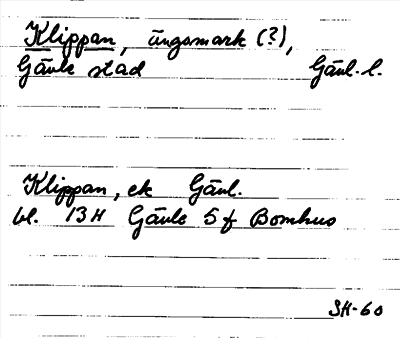 Klippan, ängsmark (?),
Gävle stad Gävl. l.
Klippan, ek Gävl.
bl. 13H Gävle 5 f Bomhus
SH-60